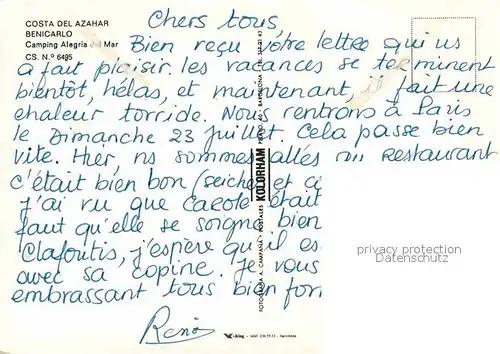 COSTA DEL AZAHAR
BENICARLO
Camping Alegria del Mar
CS. N.º 6495
Chers tous,
Bien reçu vôtre lettre qui ns
a fait plaisir. les vacances se terminent
bientôt, hélas, et maintenant, il fait une
chaleur torride. Nous rentrons à Paris
le Dimanche 23 juillet. Cela passe bien
vite. Hier, ns sommes allés au restaurant
c'était bien bon (seiche) et ci
J'ai vu que Carole était
faut qu'elle se soigne bien
Clafoutis, j'espère qu'il es
avec sa copine. Je vous
embrassant tous bien for
KOLORHAM
FOTOGRAFIA A. CAMPAÑA POSTALES
BARCELONA
privacy protection
Datenschutz